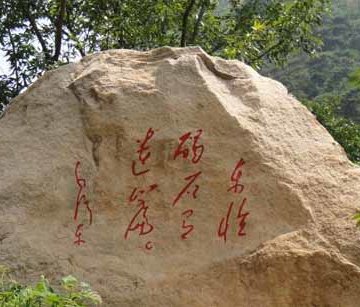 东临
碣石有
遗篇。
毛泽东